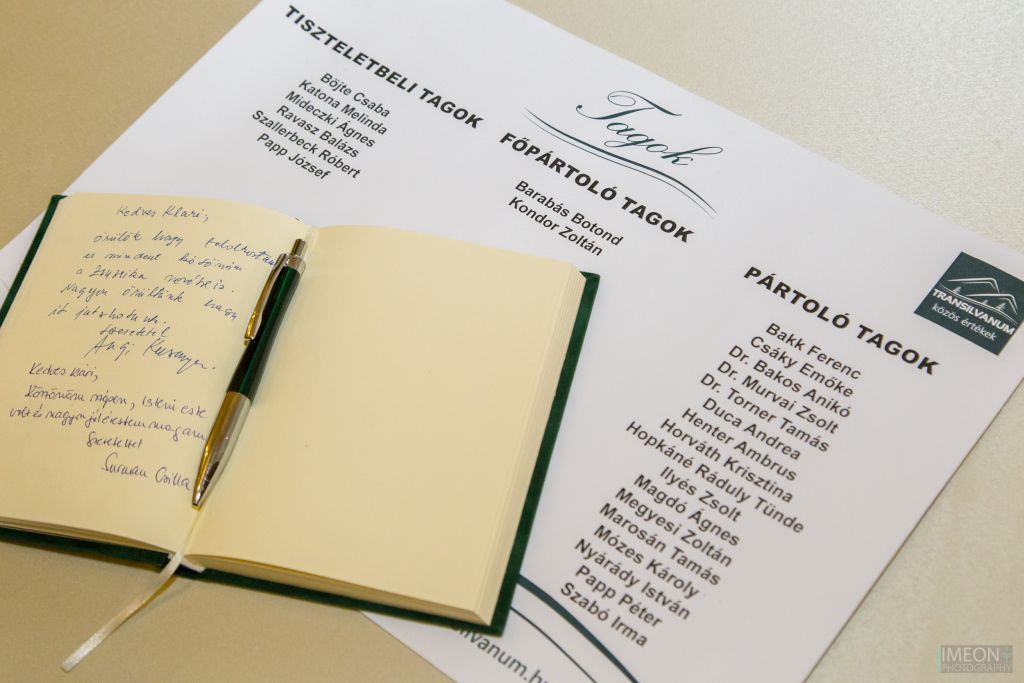 Tagok
TISZTELETBELI TAGOK
Böjte Csaba
Katona Melinda
Mideczki Ágnes
Ravasz Balázs
Szallerbeck Róbert
Papp József
FŐPÁRTOLÓ TAGOK
Barabás Botond
Kondor Zoltán
PÁRTOLÓ TAGOK
Bakk Ferenc
Csáky Emőke
Dr. Bakos Anikó
Dr. Murvai Zsolt
Dr. Torner Tamás
Duca Andrea
Henter Ambrus
Horváth Krisztina
Hopkáné Ráduly Tünde
Ilyés Zsolt
Magdó Ágnes
Megyesi Zoltán
Marosán Tamás
Mózes Károly
Nyárády István
Papp Péter
Szabó Irma
TRANSILVANUM
közös értékek
silvanum.hu
Kedves Klári,
örülök hogy
mindent köszönöm
a Zsuzsika nevében is.
Nagyon örültünk hogy
itt
szeretettel
Kedves Klári,
Köszönöm szépen, isteni este
volt és nagyon jól éreztem magam
Szeretettel
Csilla
IMEON
PHOTOGRAPHY